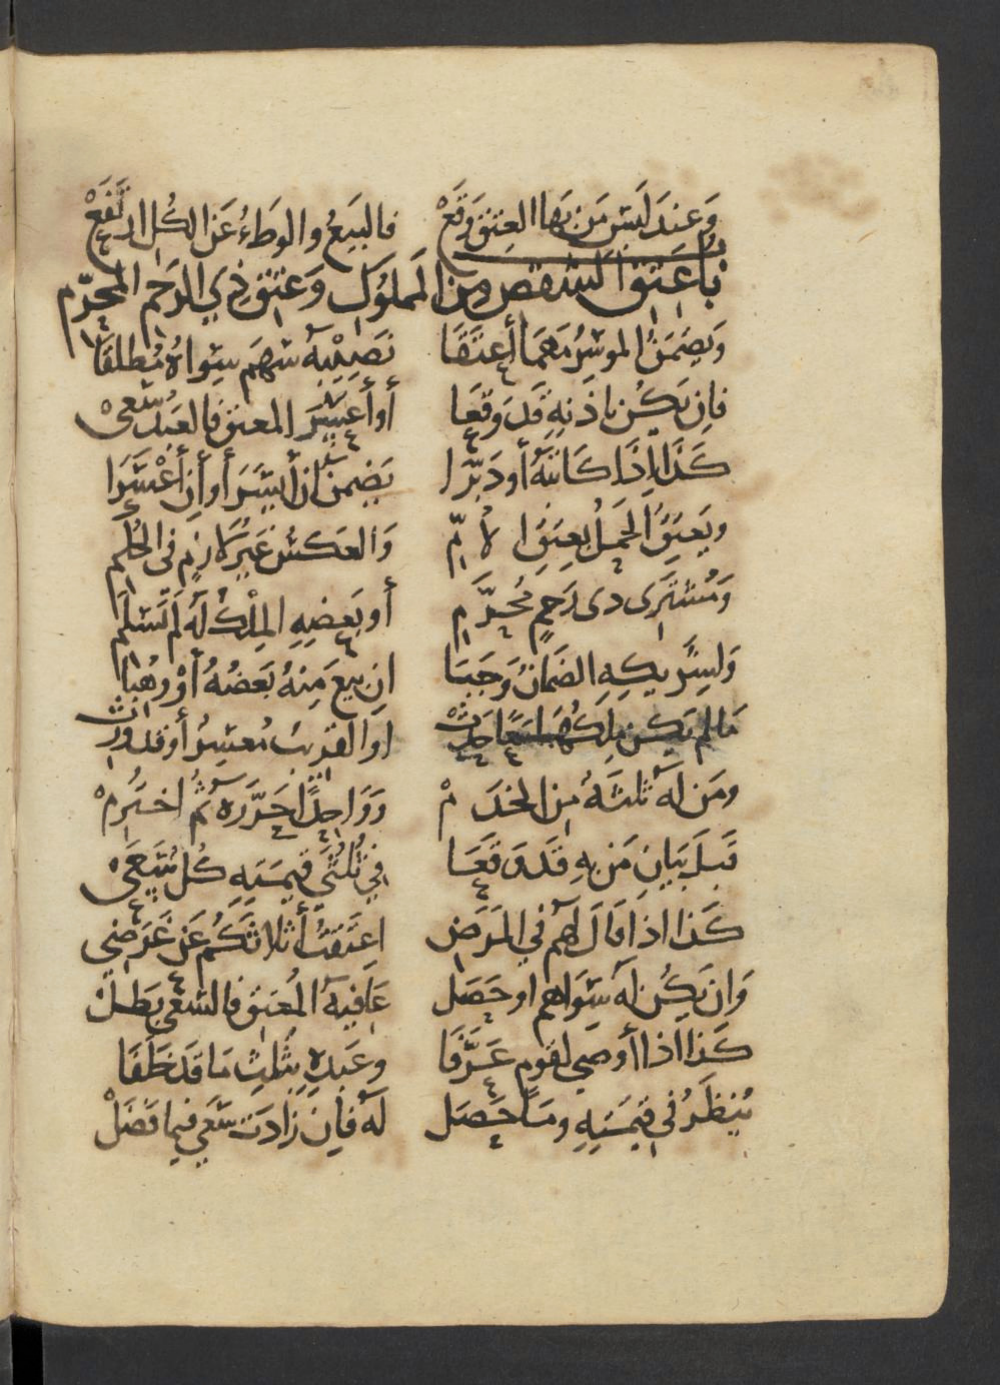 وَعِندَ لَبسِ مَن بِهَا العِتقُ وَقَعْ فَالبَيعُ والوَطءُ عَن الكُلِ ارتَفَعْ
بَابُ عِتق الشقص من المملوك وَعِتقِ ذي الرَحِم المحرّم
وَيضمَنُ الموسِرُ مَهمَا أَعتَقَا نَصِيبَهُ سَهمَ سِوَاهُ مُطلَقَا
فَإن يَكُن بِإذنِهِ قَد وَقَعَا أو أَعسَرَ المعتِقُ فالعَبدُ سَعَى
كَذَا إِذَا كَاتَبَهُ أو دَبَّرَا يَضمنُ إن أَيسَرَ أو أن أَعْسَرَا
ويَعتِقُ الحَملُ بِعِتقِ الأمِّ وَالعَكسُ غَيرُ لازمٍ في الحُكمِ
وَمُشتَرِى ذى رَحِمٍ مُحَرَّمِ أو بَعضِهِ المِلْكُ لَهُ لَم يَسْلَمِ
وَلِشَرِيكِهِ الضَمَانُ وَجَبَا إن بِيعَ مِنهُ بَعضُهُ أَوْ وُهِبَا
مَا لم يَكُن أو القَريبُ مُعسِرٌ أو قد وَرِثْ
ومَن لَهُ ثلثَةٌ مِن الخدَمْ وَوَاحِدًا حَرَّرَهُ ثُمَّ اختُرِمْ
قَبلَ بَيَانِ مَن بِهِ قَد وَقَعَا في ثُلُثَي قِيمَتِهِ كُلٌّ سَعَى
كَذَا اذَا قَالَ لَهم في المَرَضِ اعتَقتُ أثلاثَكُم عَن غَرَضِي
وَان يَكُن لَهُ سِوَاهم او حَصَل عَافِيةُ المُعتِقِ فالسَعي بَطَلْ
كَذَا اذا أوصى لقومٍ عَرَّفَا وعَبدهِ بِثُلثِ مَا قَد خَلَّفَا
يُنظَرُ في قِيمَتِهِ ومَا حَصَل لَهُ فَإن زَادَت سَعَى فيما فَضَلْ